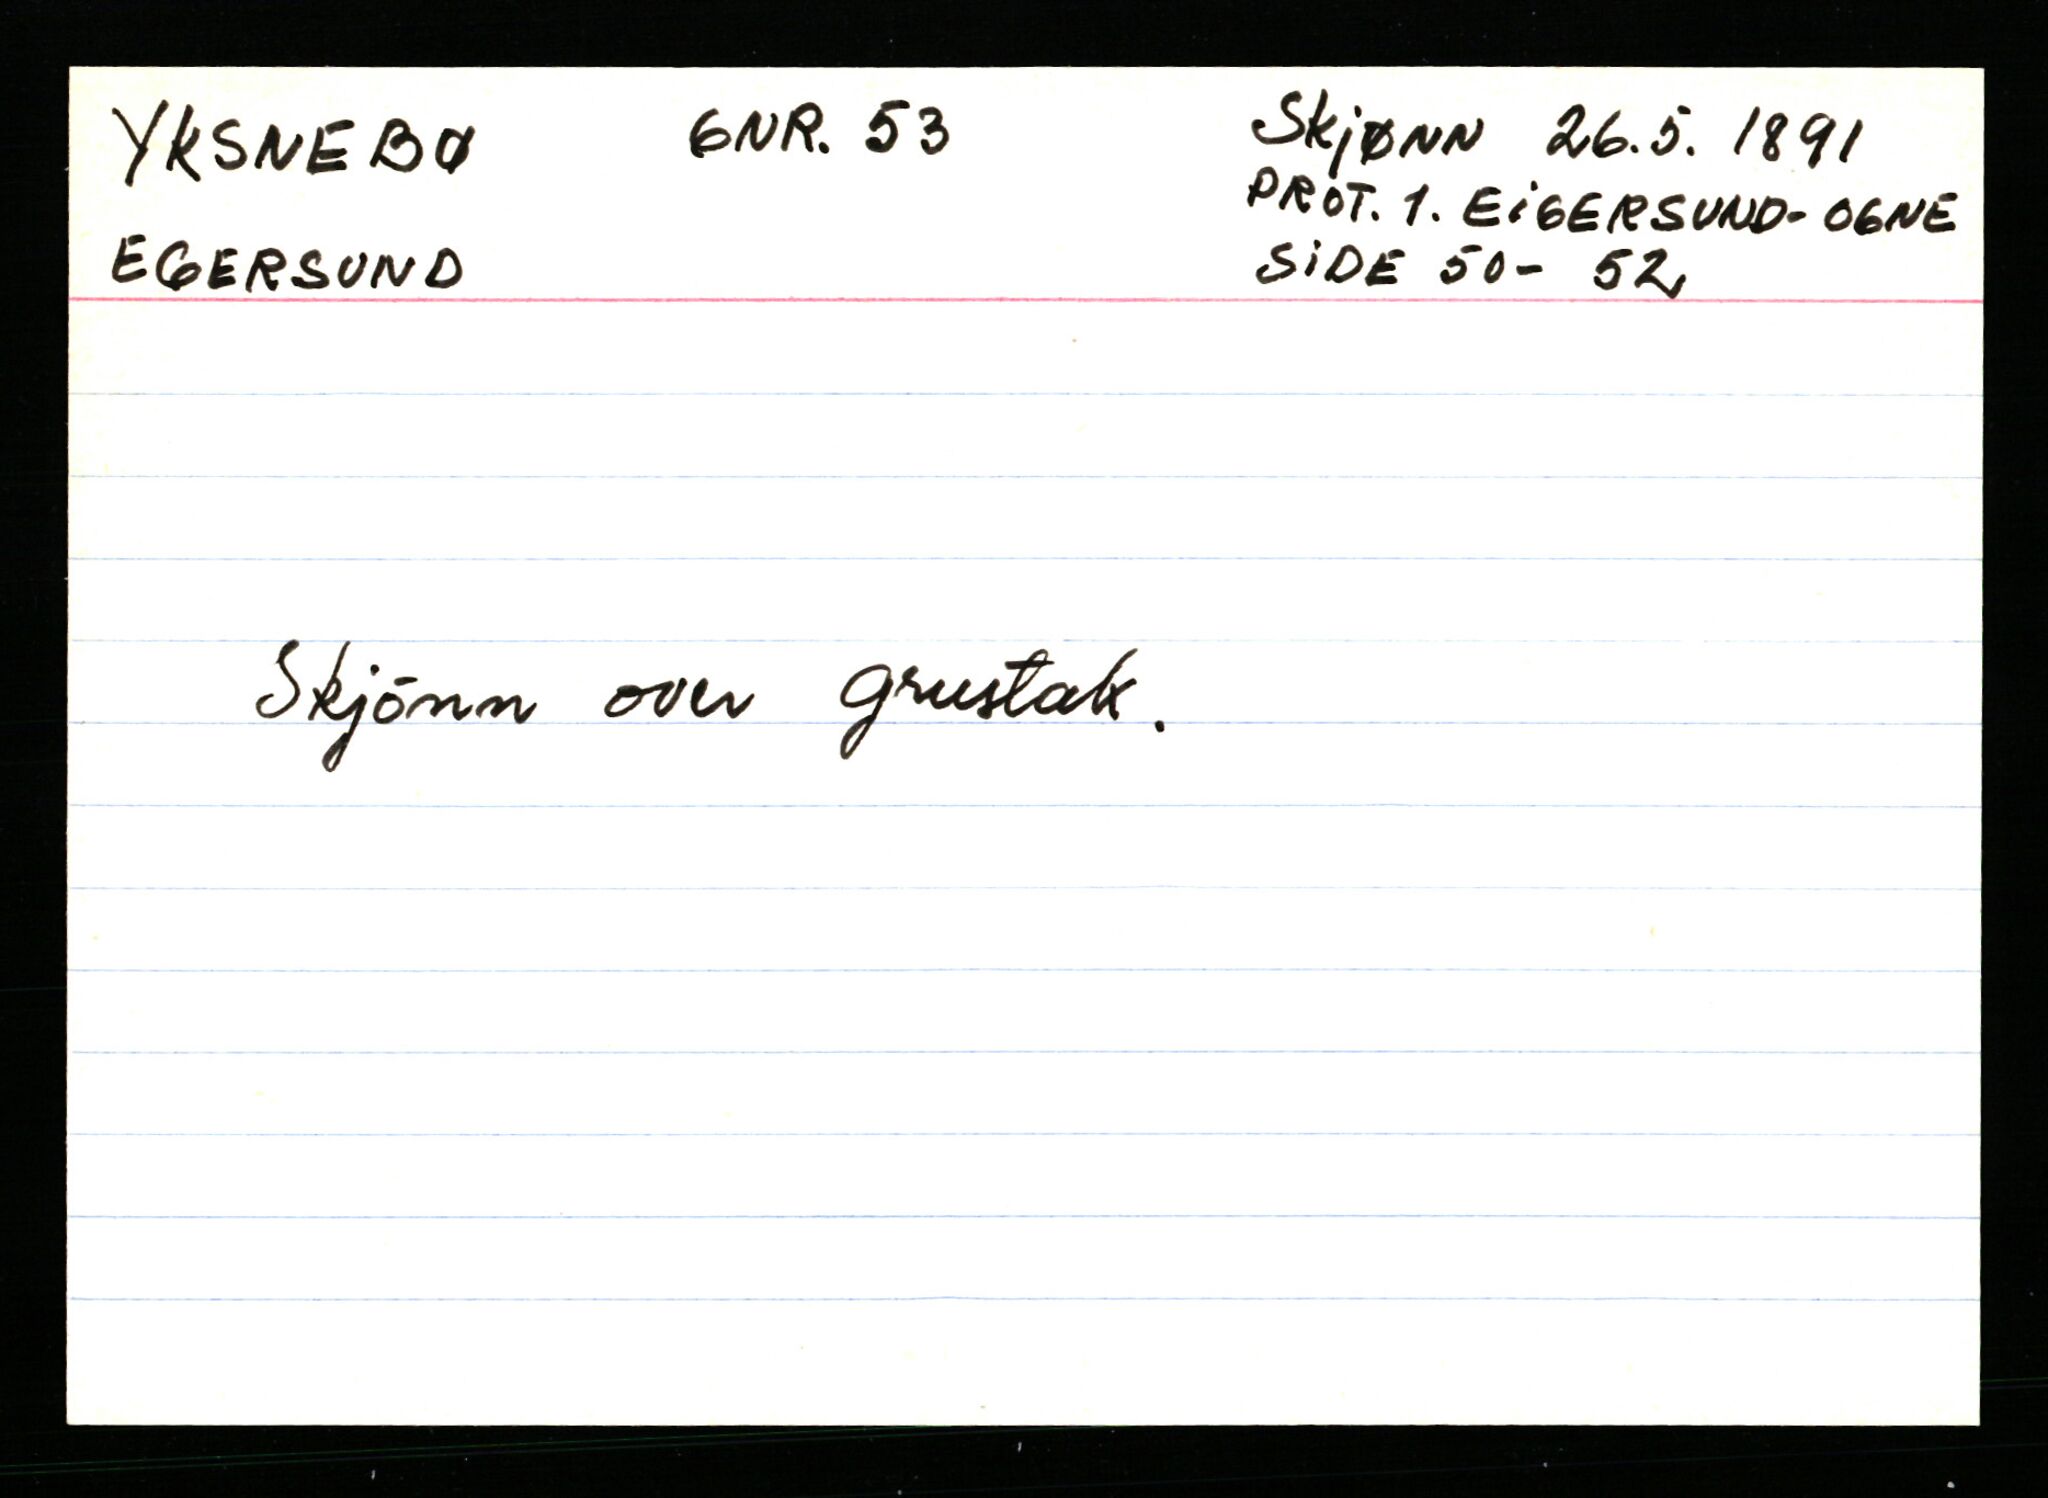 YKSNEBØ GNR. 53 Skjønn 26.5. 1891
PROT. 1. EIGERSUND-OGNE
EGERSUND SIDE 50- 52
Skjönn over grustak.